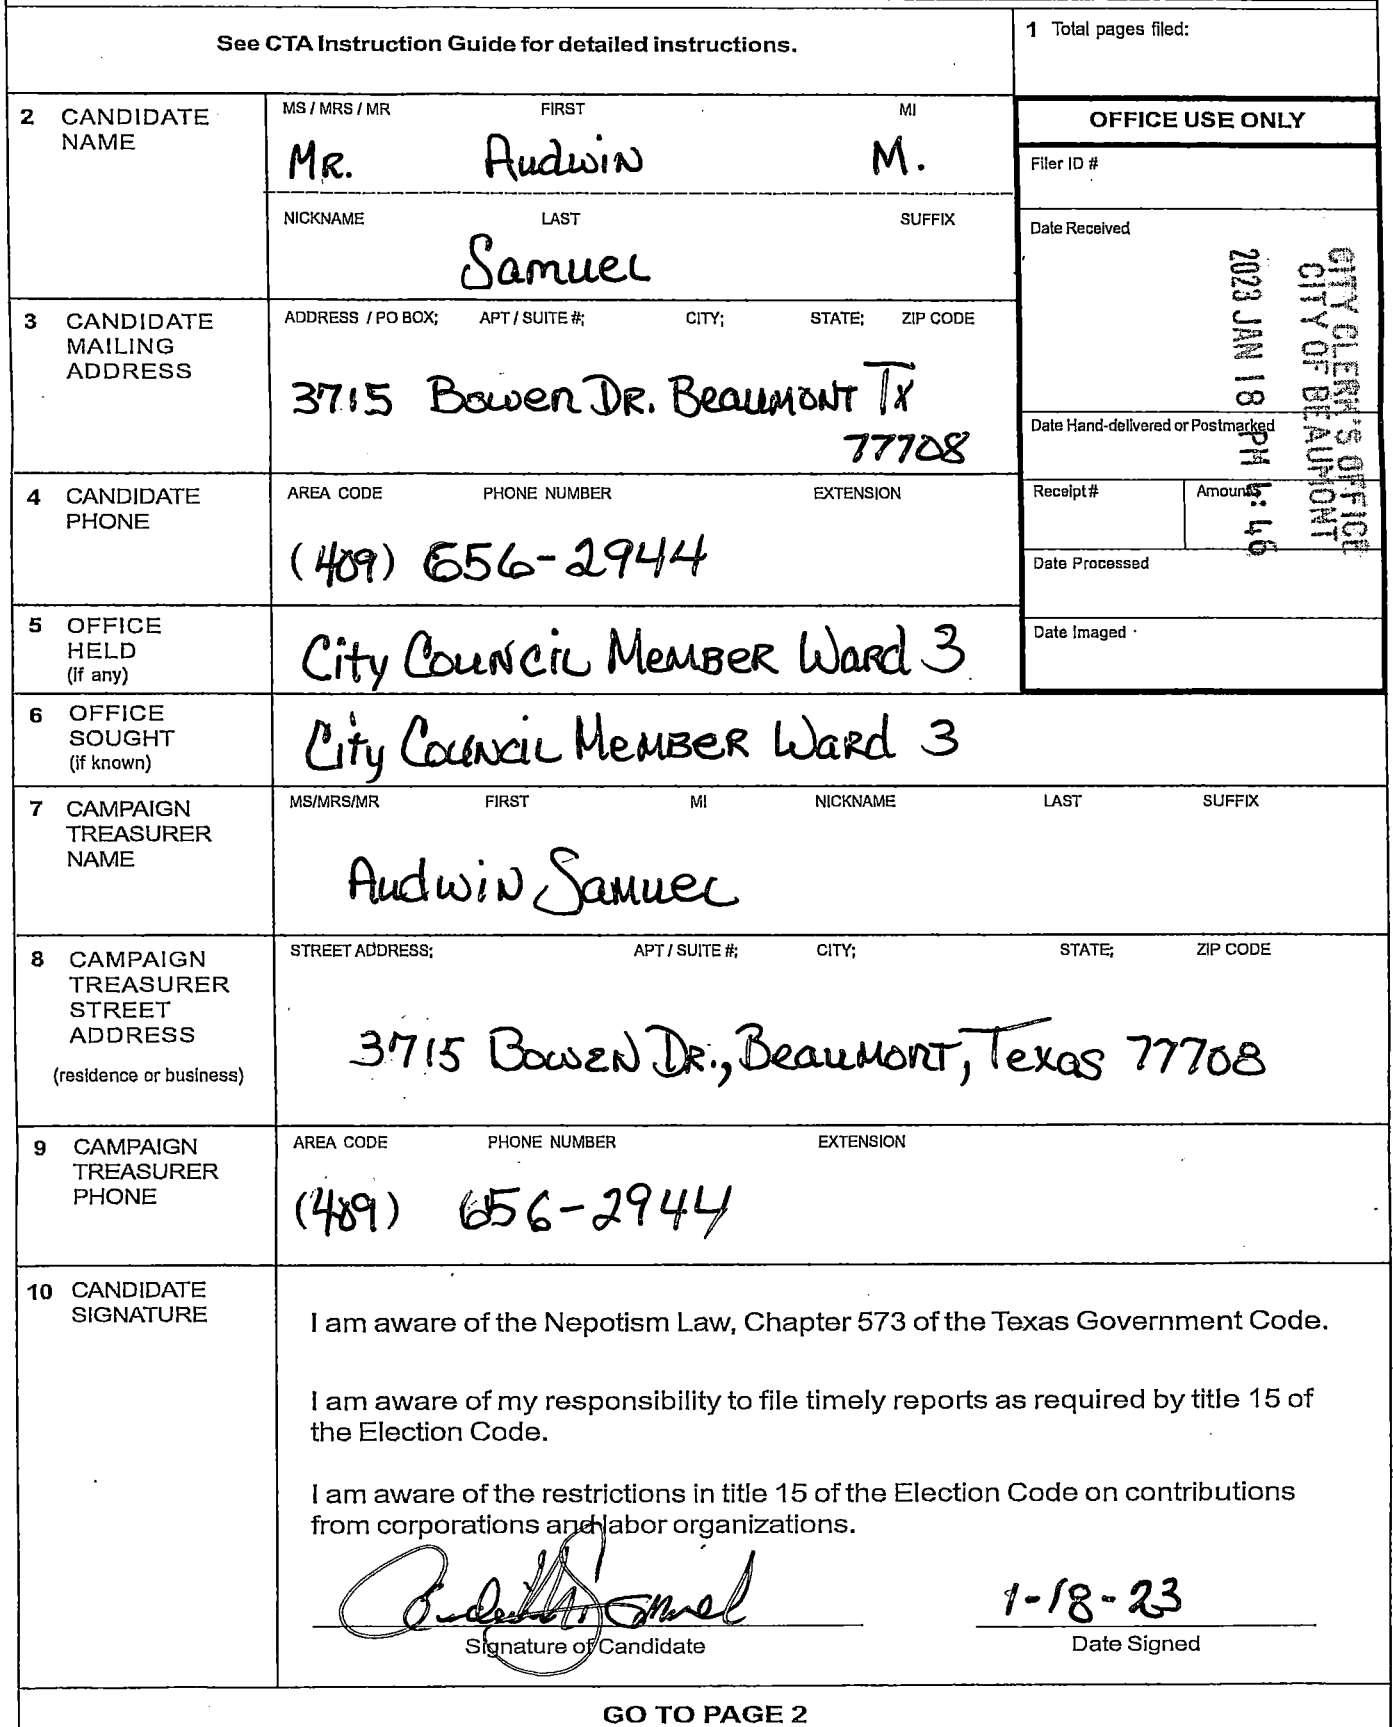 See CTA Instruction Guide for detailed instructions.
1 Total pages filed:
2 CANDIDATE NAME
MS / MRS / MR FIRST MI
MR. Audwin M.
NICKNAME LAST SUFFIX
Samuel
OFFICE USE ONLY
Filer ID #
Date Received
CITY CLERK'S OFFICE
CITY OF BEAUMONT
2023 JAN 18 PM 4:46
Date Hand-delivered or Postmarked
Receipt # Amount $
Date Processed
Date Imaged
3 CANDIDATE MAILING ADDRESS
ADDRESS / PO BOX; APT / SUITE #; CITY; STATE; ZIP CODE
3715 Bowen DR. Beaumont TX
77708
4 CANDIDATE PHONE
AREA CODE PHONE NUMBER EXTENSION
(409) 656-2944
5 OFFICE HELD (if any)
City Council Member Ward 3
6 OFFICE SOUGHT (if known)
City Council Member Ward 3
7 CAMPAIGN TREASURER NAME
MS/MRS/MR FIRST MI NICKNAME LAST SUFFIX
Audwin Samuel
8 CAMPAIGN TREASURER STREET ADDRESS (residence or business)
STREET ADDRESS; APT / SUITE #; CITY; STATE; ZIP CODE
3715 Bowen DR., Beaumont, Texas 77708
9 CAMPAIGN TREASURER PHONE
AREA CODE PHONE NUMBER EXTENSION
(409) 656-2944
10 CANDIDATE SIGNATURE
I am aware of the Nepotism Law, Chapter 573 of the Texas Government Code.
I am aware of my responsibility to file timely reports as required by title 15 of
the Election Code.
I am aware of the restrictions in title 15 of the Election Code on contributions
from corporations and labor organizations.
Audwin M Samuel 1-18-23
Signature of Candidate Date Signed
GO TO PAGE 2